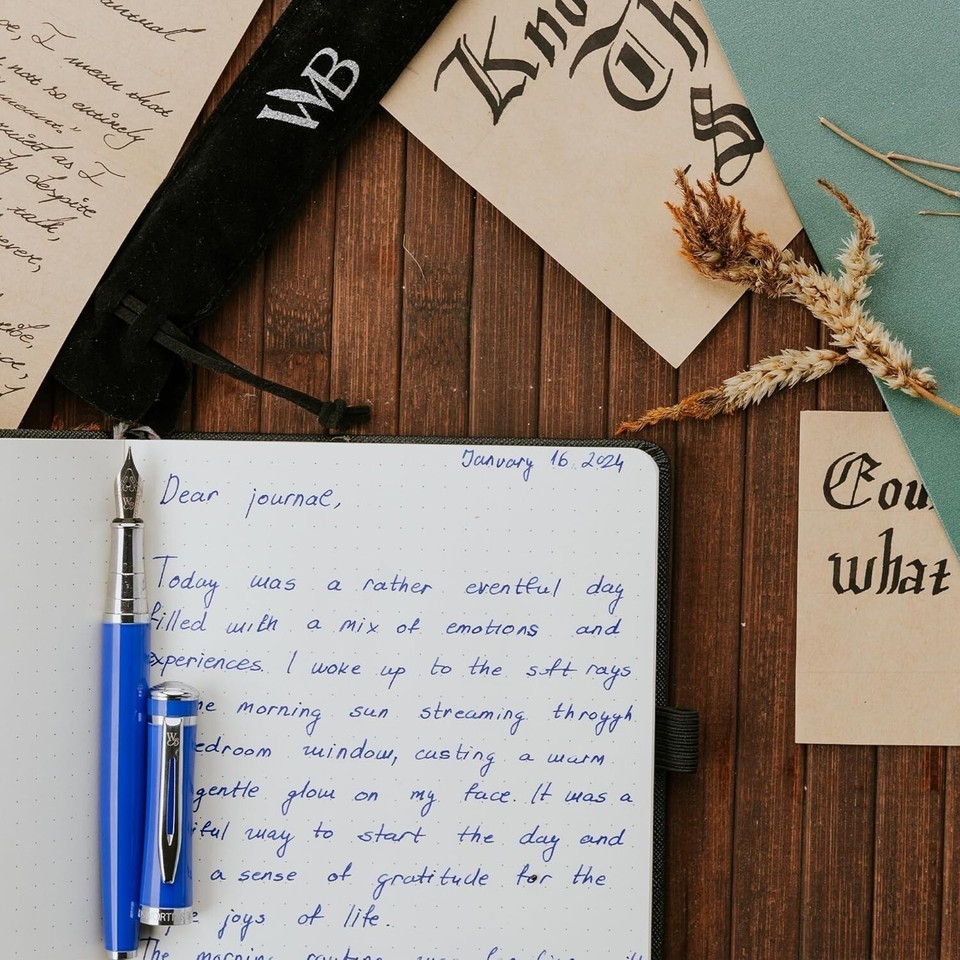 I mean that
not so entirely
as I
despite
talk,
WB
Kno
Th
S
Cou
what
January 16 2024
Dear journal,
Today was a rather eventful day
filled with a mix of emotions and
experiences. I woke up to the soft rays
he morning sun streaming through
edroom window, casting a warm
gentle glow on my face. It was a
iful way to start the day and
a sense of gratitude for the
joys of life.
The morning routine